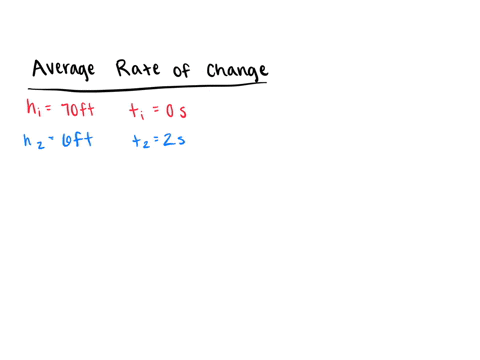 Average Rate of Change
h₁ = 70ft t₁ = 0 s
h₂ = 6ft t₂ = 2 s